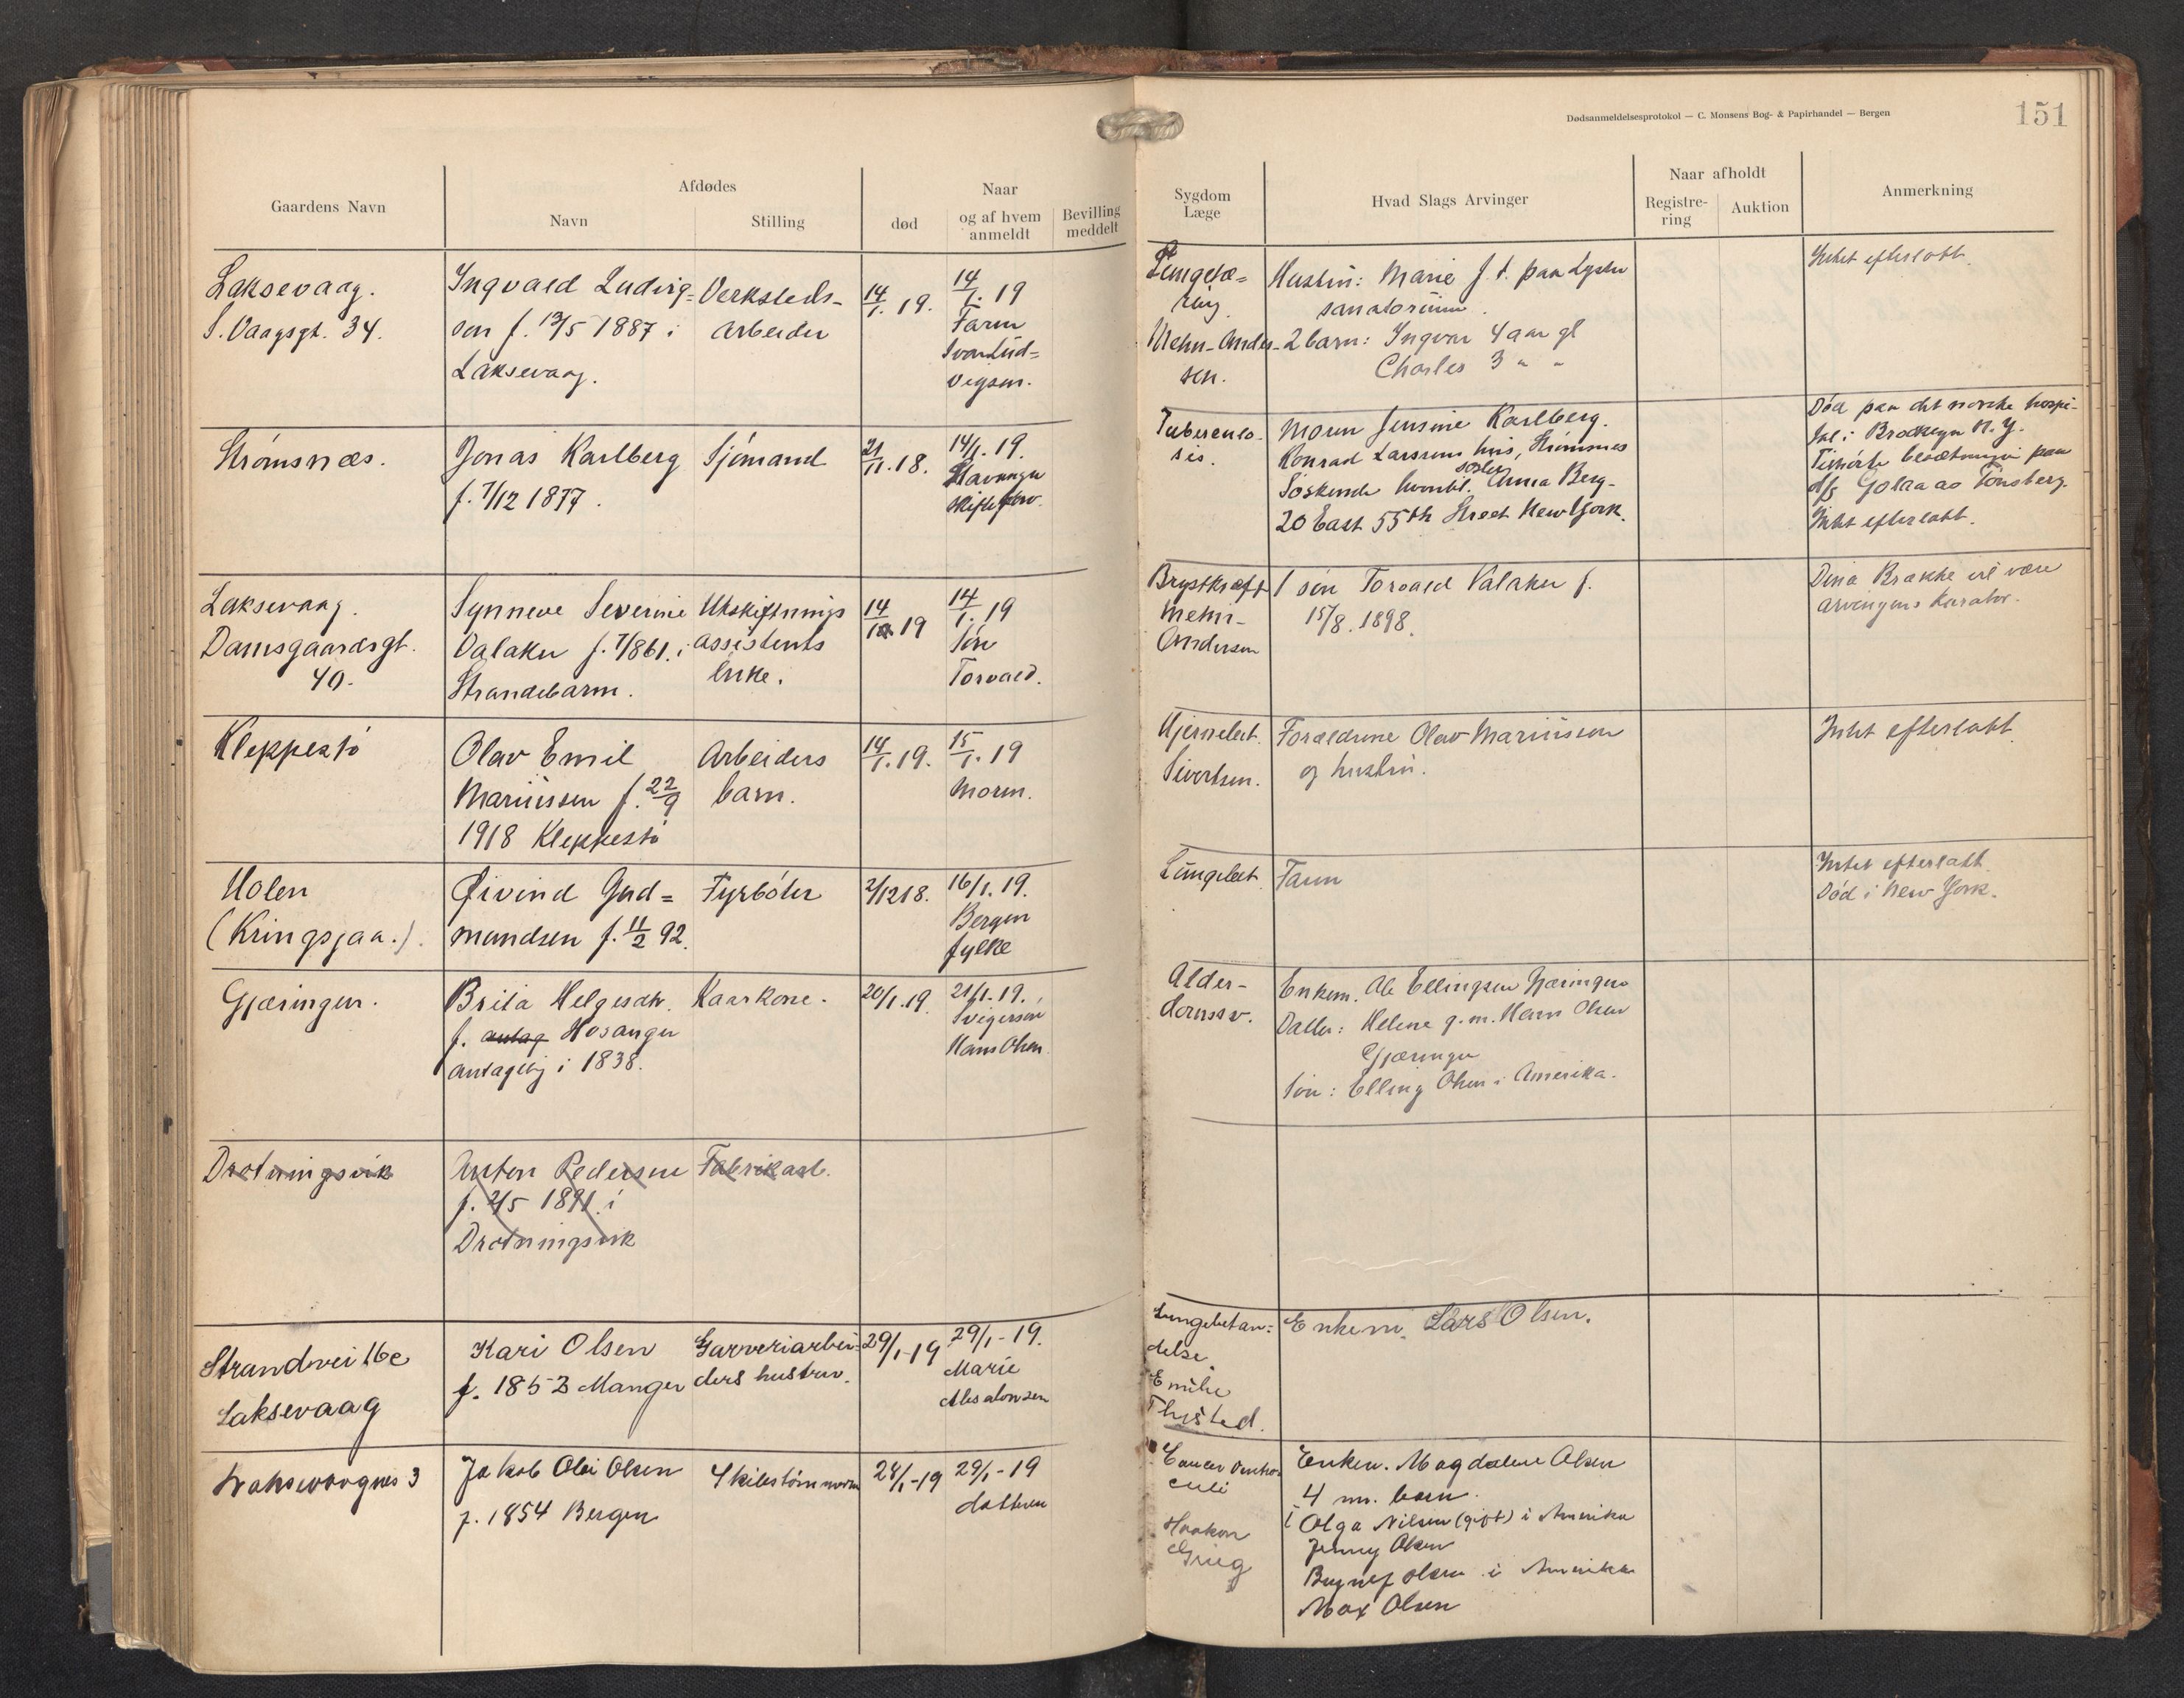 Dødsanmeldelsesprotokol — C. Monsens Bog- & Papirhandel — Bergen
151
Gaardens Navn
Afdødes
Navn
Stilling
død
Naar
og af hvem
anmeldt
Bevilling
meddelt
Sygdom
Læge
Hvad Slags Arvinger
Naar afholdt
Registre-
ring
Auktion
Anmerkning
Laksevaag.
S. Vaagsgt. 34.
Ingvald Ludvig=
sen f. 13/5 1887 i
Laksevaag.
Verksteds-
arbeider
14/1. 19.
14/1. 19
Faren
Ivar Lud=
vigsen.
Lungetæ=
ring
Mehn-Ander-
sen.
Hustru: Marie f. t. paa Lyster
sanatorium.
2 barn: Ingvar 4 aar gl
Charles 3 " "
Intet efterlatt.
Strømsnæs.
Jonas Karlberg
f. 7/12 1877.
Sjømand
21/11. 18.
14/1. 19.
Stavanger
skifte
Tuberculo-
sis.
Moren Jensine Karlberg.
Konrad Larssens hus, Strømsnes
Søskende hvoribl. søster Anna Berg-
20 East 55th Street New York.
Død paa det norske hospi-
tal i Brooklyn N. Y.
Tilhørte besætningen paa
Golaa av Tønsberg.
Intet efterlatt.
Laksevaag.
Damsgaardsgt.
40.
Synneve Severine
Valaker f. 7/861. i
Strandebarm.
Utskiftnings
assistents
enke.
14/1 19
14/1. 19
Søn
Torvald.
Brystkræft
Mehn-
Andersen
1 søn Torvald Valaker f.
15/8. 1898.
Dina Brække vil være
arvingens kurator.
Kleppestø
Olav Emil
Mariussen f. 22/9
1918 Kleppestø
Arbeiders
barn.
14/1. 19.
15/1. 19
Moren.
Hjernebet.
Sivertsen.
Forældrene Olav Mariussen
og hustru.
Intet efterlatt
Holen
(Kringsjaa.).
Øivind Gud=
mundsen f. 11/2 92.
Fyrbøter
2/12 18.
16/1. 19.
Bergen
fylke
Lungebet.
Faren
Intet efterlatt.
Død i New York.
Gjæringen.
Brita Helgesdtr.
f. antag Hosanger
antagelig i 1838.
Kaarkone.
20/1. 19.
21/1. 19.
Svigersøn
Hans Olsen
Alder-
domssv.
Enkem. Ole Ellingsen Gjæringen
Datter: Helene g. m. Hans Olsen
Gjæringen
Søn: Elling Olsen i Amerika.
Drotningsvik
Anton Pedersen
f. 2/5 1891. i
Drotningsvik
Fabrikarb.
Strandvei 16e
Laksevaag
Kari Olsen
f. 1853 Manger
Garveriarbei-
ders hustru.
29/1-19
29/1-19.
Marie
Absalonsen
Lungebetæn=
delse.
Emilie
Thisted.
Enkem. Lars Olsen.
Laksevaagnes 3
Jakob Olai Olsen
f. 1854 Bergen
Skibstømmerm
28/1-19
29/1-19
datteren
Cancer ventri
culi
Haakon
Grieg
Enken. Magdalene Olsen
4 m. barn.
Olga Nilsen (gift) i Amerika
Jenny Olsen
Olsen i Amerika
Max Olsen